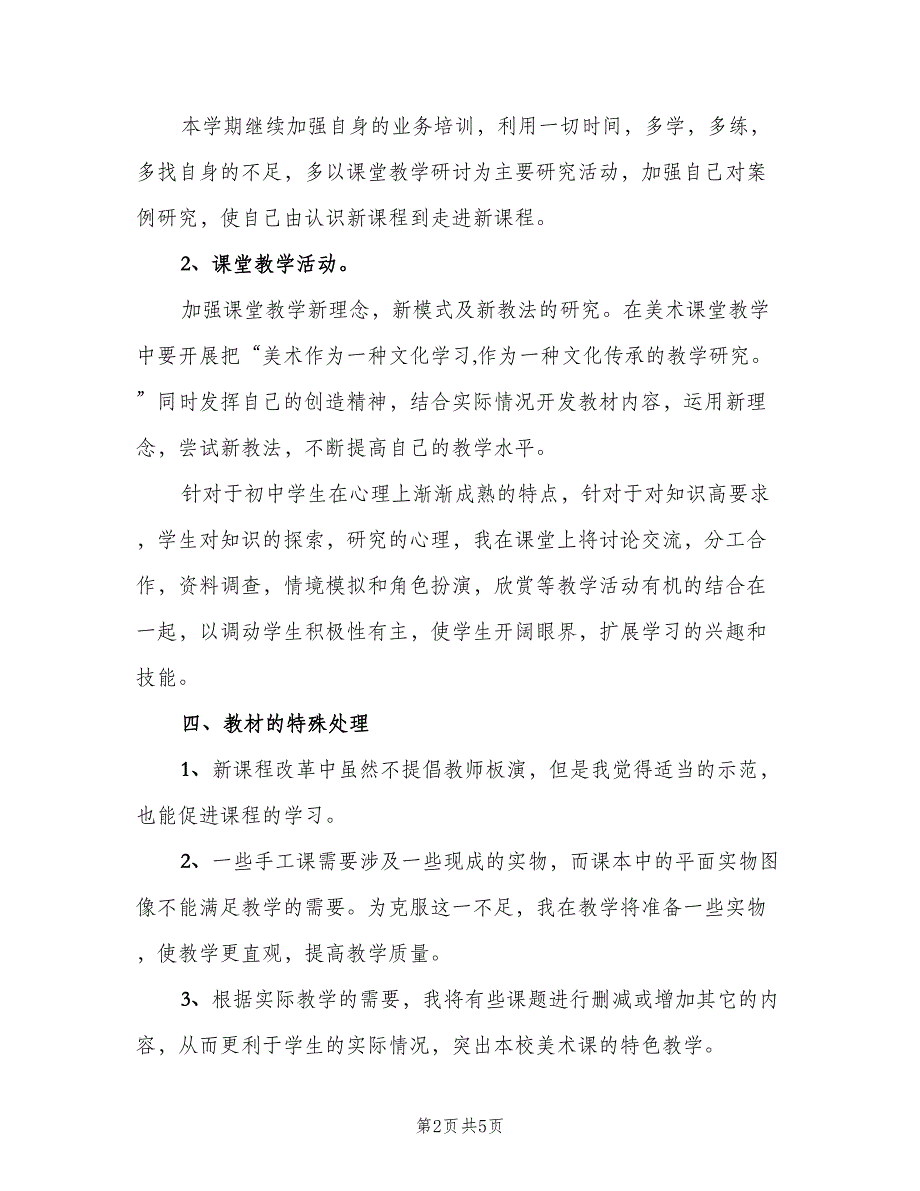 本学期继续加强自身的业务培训，利用一切时间，多学，多练，
多找自身的不足，多以课堂教学研讨为主要研究活动，加强自己对案
例研究，使自己由认识新课程到走进新课程。
2、课堂教学活动。
加强课堂教学新理念，新模式及新教法的研究。在美术课堂教学
中要开展把“美术作为一种文化学习,作为一种文化传承的教学研究。
”同时发挥自己的创造精神，结合实际情况开发教材内容，运用新理
念，尝试新教法，不断提高自己的教学水平。
针对于初中学生在心理上渐渐成熟的特点，针对于对知识高要求
，学生对知识的探索，研究的心理，我在课堂上将讨论交流，分工合
作，资料调查，情境模拟和角色扮演，欣赏等教学活动有机的结合在
一起，以调动学生积极性有主，使学生开阔眼界，扩展学习的兴趣和
技能。
四、教材的特殊处理
1、新课程改革中虽然不提倡教师板演，但是我觉得适当的示范，
也能促进课程的学习。
2、一些手工课需要涉及一些现成的实物，而课本中的平面实物图
像不能满足教学的需要。为克服这一不足，我在教学将准备一些实物
，使教学更直观，提高教学质量。
3、根据实际教学的需要，我将有些课题进行删减或增加其它的内
容，从而更利于学生的实际情况，突出本校美术课的特色教学。
第2页共5页